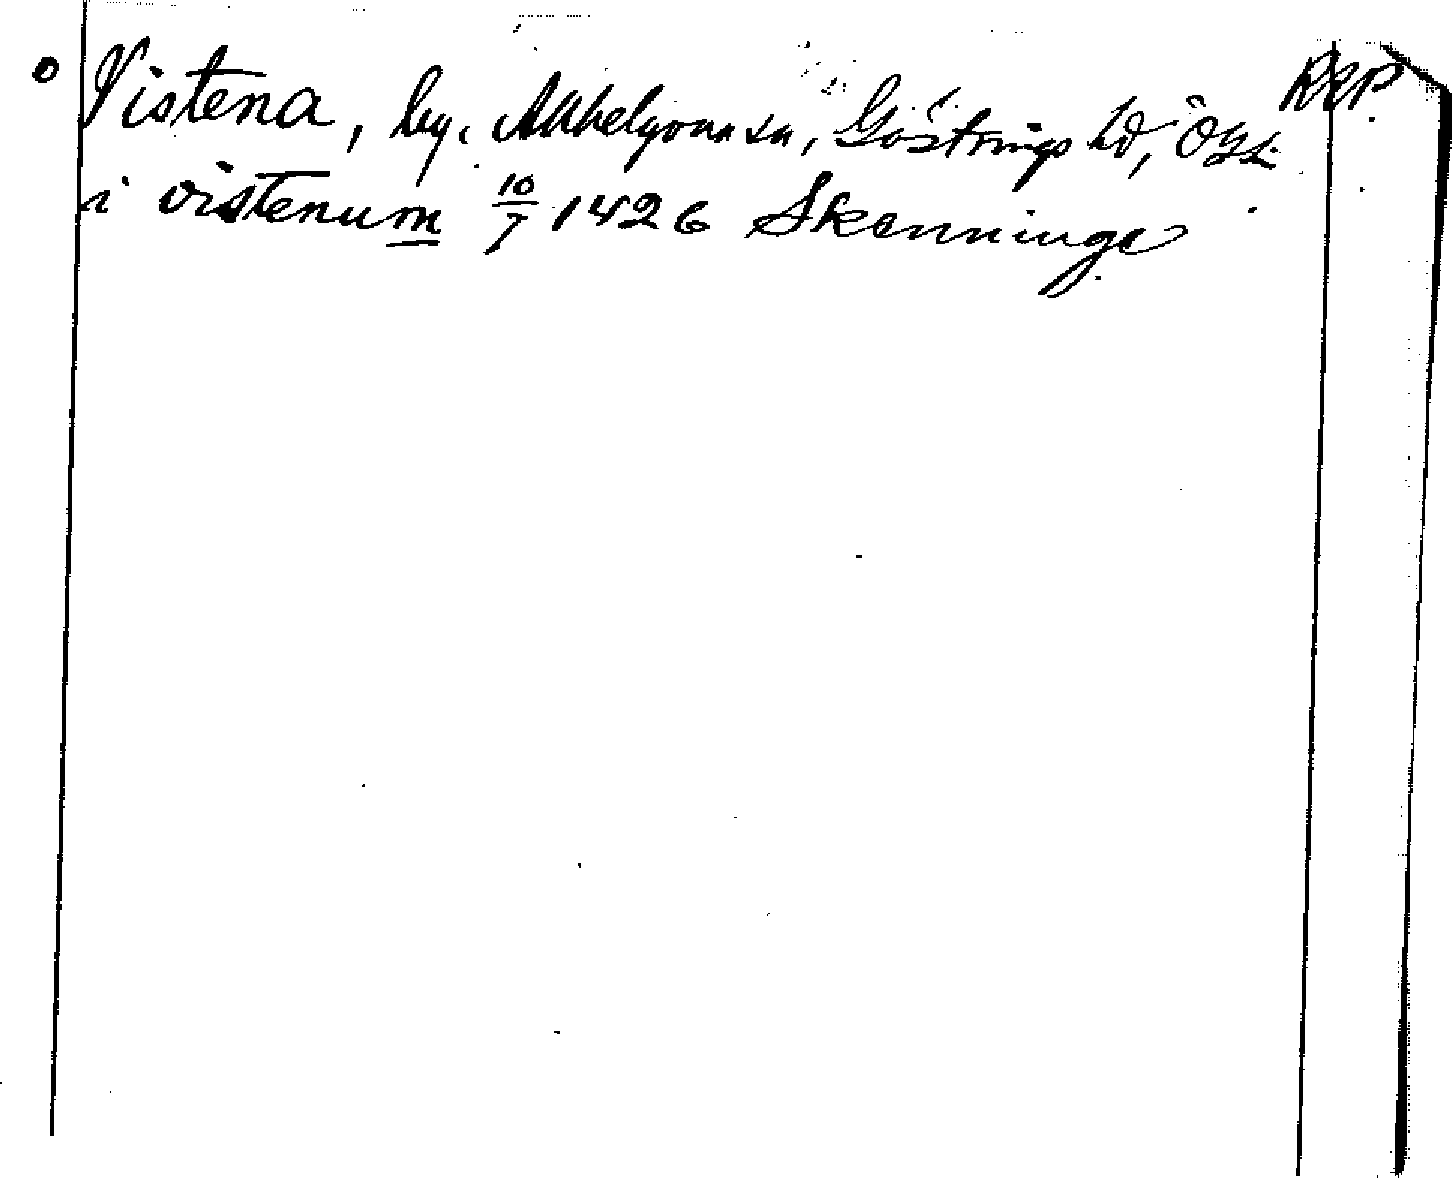 o Vistena, by, Allhelgona sn, Göstrings hd, Ögl. RAP
i vistenum 10/7 1426 Skenninge